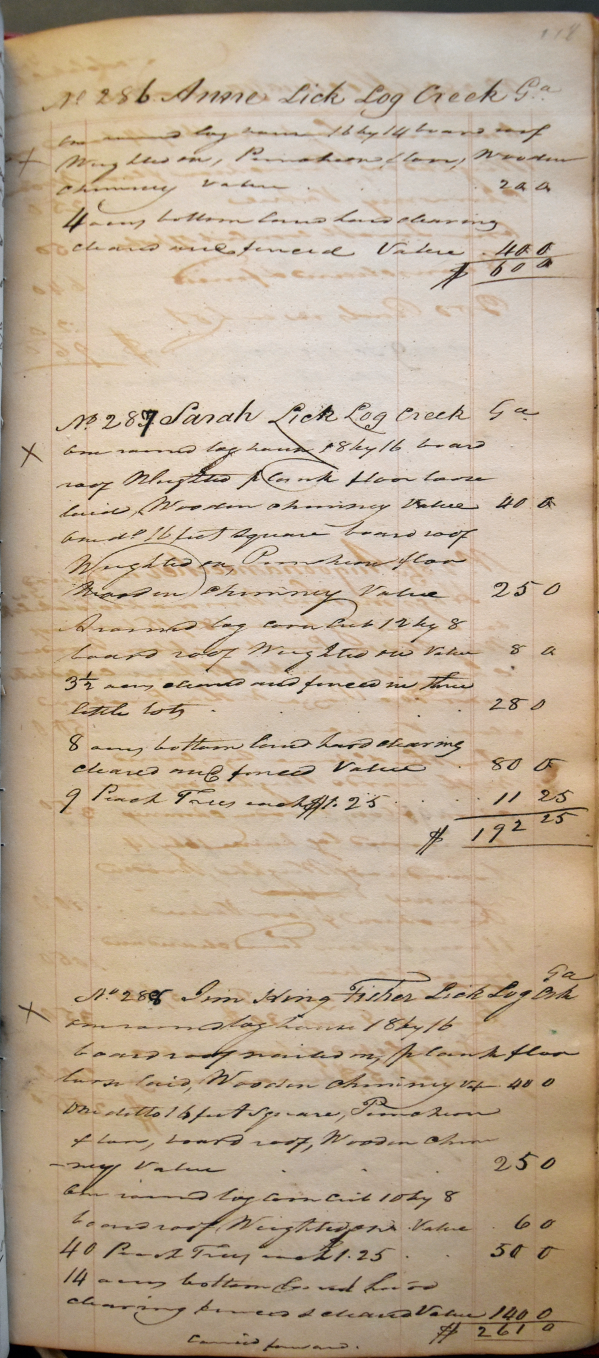 118
No 286 Anne Lick Log Creek Ga
One round log house 16 by 14 board roof
Weighted on, Puncheon floor, Wooden
chimney Value 20 0
4 acres bottom land hard clearing
cleared and fenced Value 40 0
$ 60 0
No 287 Sarah Lick Log Creek Ga
One round log house 18 by 16 board
roof Weighted plank floor loose
laid, Wooden chimney Value 40 0
One do 16 feet square board roof
Weighted on, Puncheon floor
Wooden chimney Value 25 0
A round log corn crib 12 by 8
board roof Weighted on Value 8 0
3½ acres cleared and fenced in three
little lots 28 0
8 acres bottom land hard clearing
cleared and fenced Value 80 0
9 Peach Trees each $1.25 11 25
$ 192 25
Ga
No 288 Jim King Fisher Lick Log Crk
One round log house 18 by 16
board roof nailed on, plank floor
loose laid, Wooden chimney 40 0
One ditto 16 feet square, Puncheon
floor, board roof, Wooden chim
ney Value 25 0
One round log corn crib 10 by 8
board roof, Weighted on Value 6 0
40 Peach Trees each 1.25 50 0
14 acres bottom land hard
clearing fenced & cleared Value 140 0
$ 261 0
Carried forward.